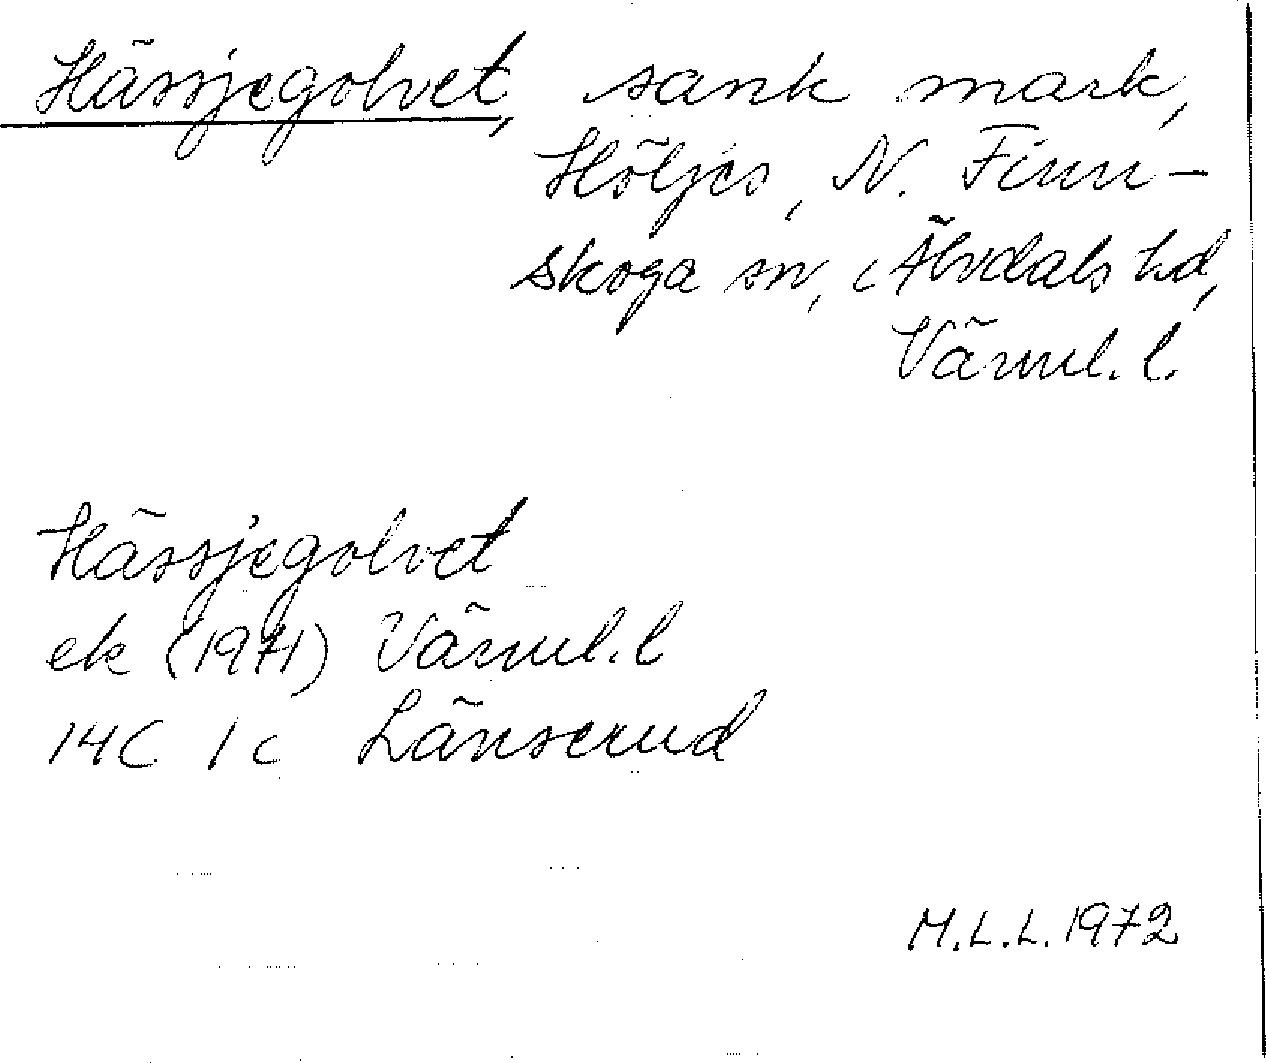 Hässjegolvet, sank mark,
Höljes, N. Finn-
skoga sn, Älvdals hd,
Värml. l.
Hässjegolvet
ek (1971) Värml. l
14C 1c Länserud
M.L.L. 1972